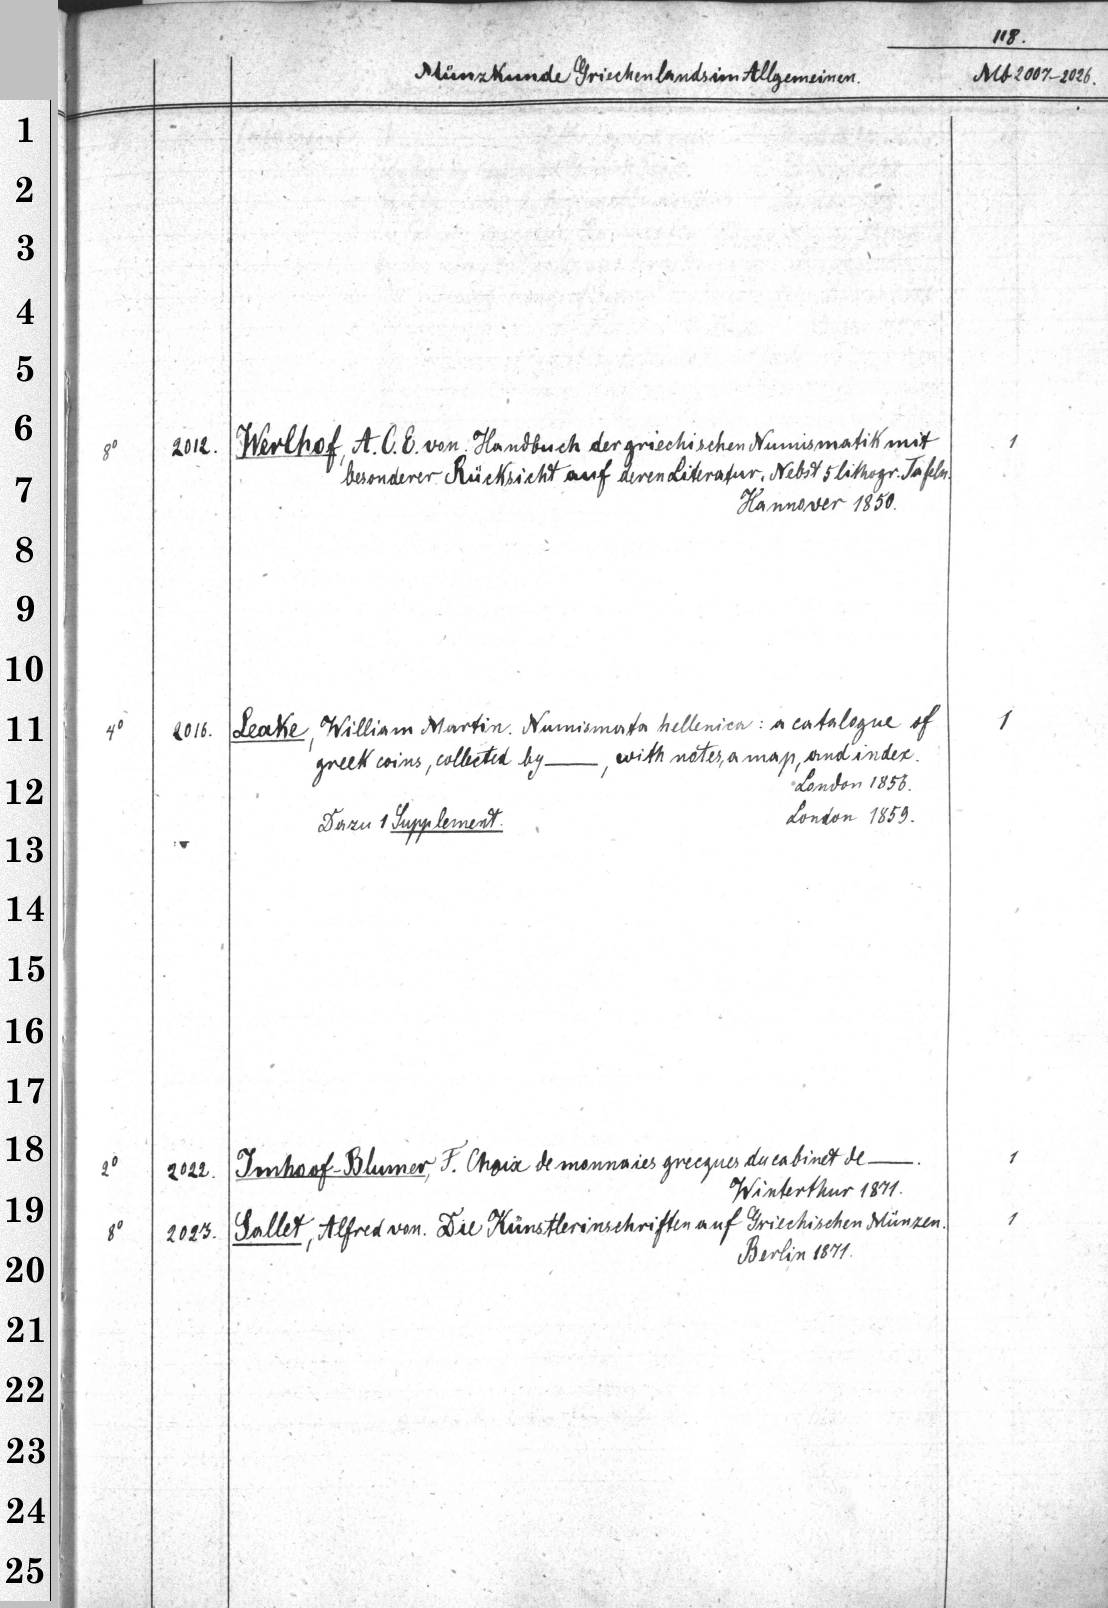 118.
Münzkunde Griechenlands im Allgemeinen. Mb 2007-2026.
1
2
3
4
5
6
8° 2012. Werlhof, A. C. E. von. Handbuch der griechischen Numismatik mit 1
besonderer Rücksicht auf deren Literatur. Nebst 5 lithogr. Tafeln.
7
Hannover 1850.
8
9
10
11
4° 2016. Leake, William Martin. Numismata hellenica: a catalogue of 1
greek coins, collected by ——, with notes, a map, and index.
12
London 1856.
Dazu 1 Supplement. London 1859.
13
14
15
16
17
18
2° 2022. Imhoof-Blumer, F. Choix de monnaies grecques du cabinet de ——. 1
Winterthur 1871.
19
8° 2023. Sallet, Alfred von. Die Künstlerinschriften auf Griechischen Münzen. 1
Berlin 1871.
20
21
22
23
24
25